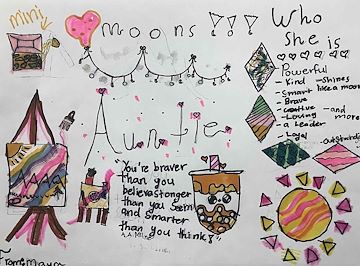 mini
moons !!!
Who
she is
Auntie
Powerful
- Kind - Shines
- Smart like a moon
- Brave
- Loving - and
- a Leader more
- Loyal
"You're braver
than you
believe stonger
than you seem
and smarter
than you think"
A.A.
From: Maya